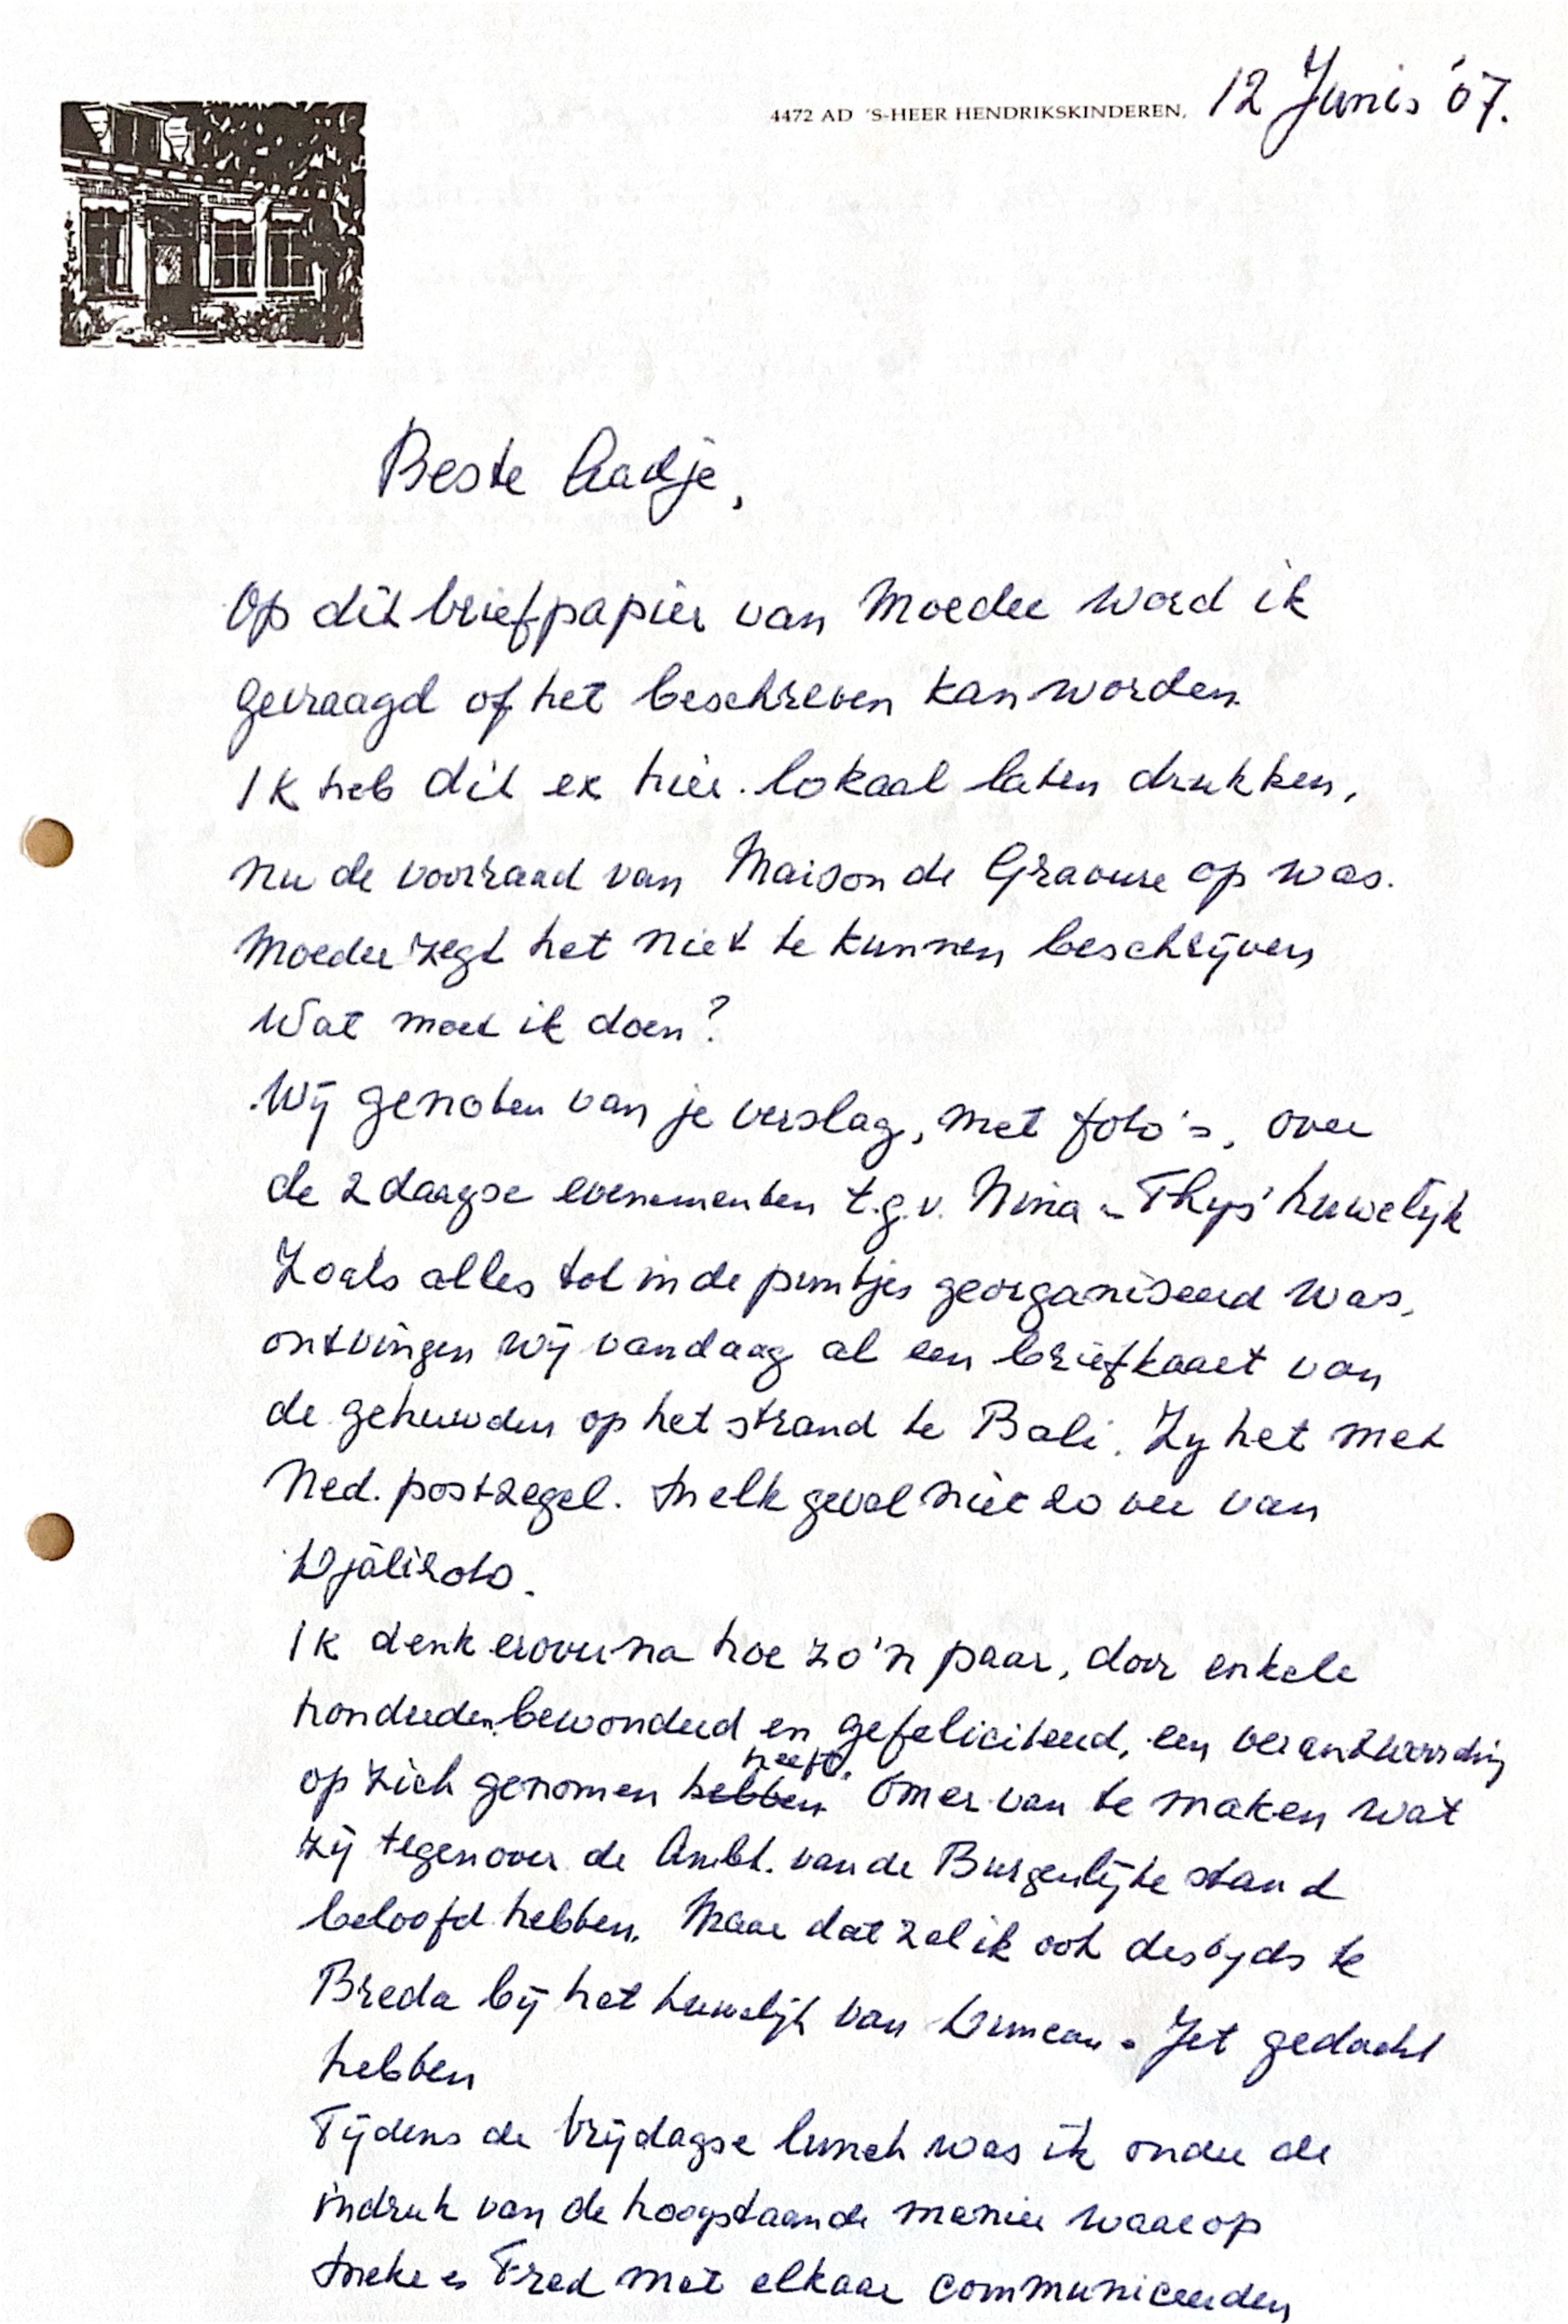 4472 AD 'S-HEER HENDRIKSKINDEREN, 12 Juni '07.
Beste Aadje,
Op dit briefpapier van Moeder word ik
gevraagd of het beschreven kan worden.
Ik heb dit ex hier lokaal laten drukken,
nu de voorraad van Maison de Gravure op was.
Moeder zegt het niet te kunnen beschrijven
Wat moet ik doen?
Wij genoten van je verslag, met foto's, over
de 2 daagse evenementen t.g.v. Nina - Thijs' huwelijk
Zoals alles tot in de puntjes georganiseerd was,
ontvingen wij vandaag al een briefkaart van
de gehuwden op het strand te Bali. Zij het met
Ned. postzegel. In elk geval niet zo ver van
Djälizoto.
Ik denk erover na hoe zo'n paar, door enkele
honderden bewonderd en gefeliciteerd, een verantwoording
op zich genomen hebben heeft. Om er van te maken wat
zij tegenover de Ambt. van de Burgerlijke stand
beloofd hebben. Maar dat zal ik ook destijds te
Breda bij het huwelijk van Duncan - Jet gedacht
hebben
Tijdens de Vrijdagse lunch was ik onder de
indruk van de hoogstaande manier waarop
Ineke en Fred met elkaar communiceerden